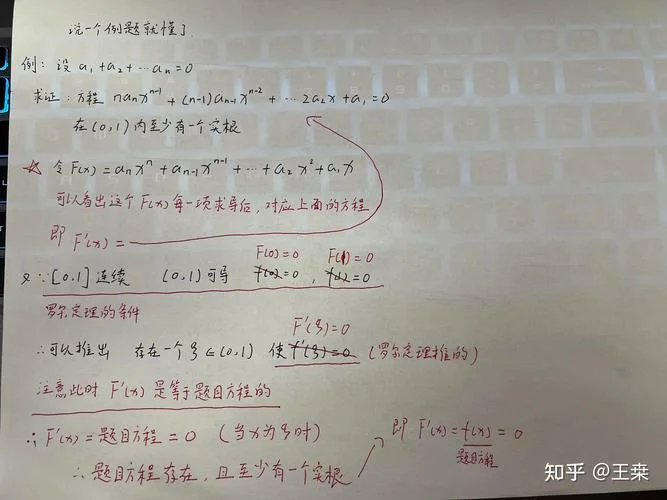 说一个例题就懂了
例：设 a₁+a₂+⋯aₙ=0
求证：方程 naₙxⁿ⁻¹+(n-1)aₙ₋₁xⁿ⁻²+⋯2a₂x+a₁=0
在(0,1)内至少有一个实根
☆ 令F(x)=aₙxⁿ+aₙ₋₁xⁿ⁻¹+⋯+a₂x²+a₁x
可以看出这个F(x)每一项求导后，对应上面的方程
即 F'(x)=
F(0)=0 F(1)=0
又∵[0,1]连续 (0,1)可导 f(0)=0，f(1)=0
罗尔定理的条件
F'(ξ)=0
∴可以推出 存在一个ξ∈(0,1) 使f'(ξ)=0 (罗尔定理推的)
注意此时 F'(x) 是等于题目方程的
∴F'(x)=题目方程=0 (当x为ξ时)
即 F'(x)=f(x)=0
题目方程
∴题目方程存在，且至少有一个实根
知乎 @王燊